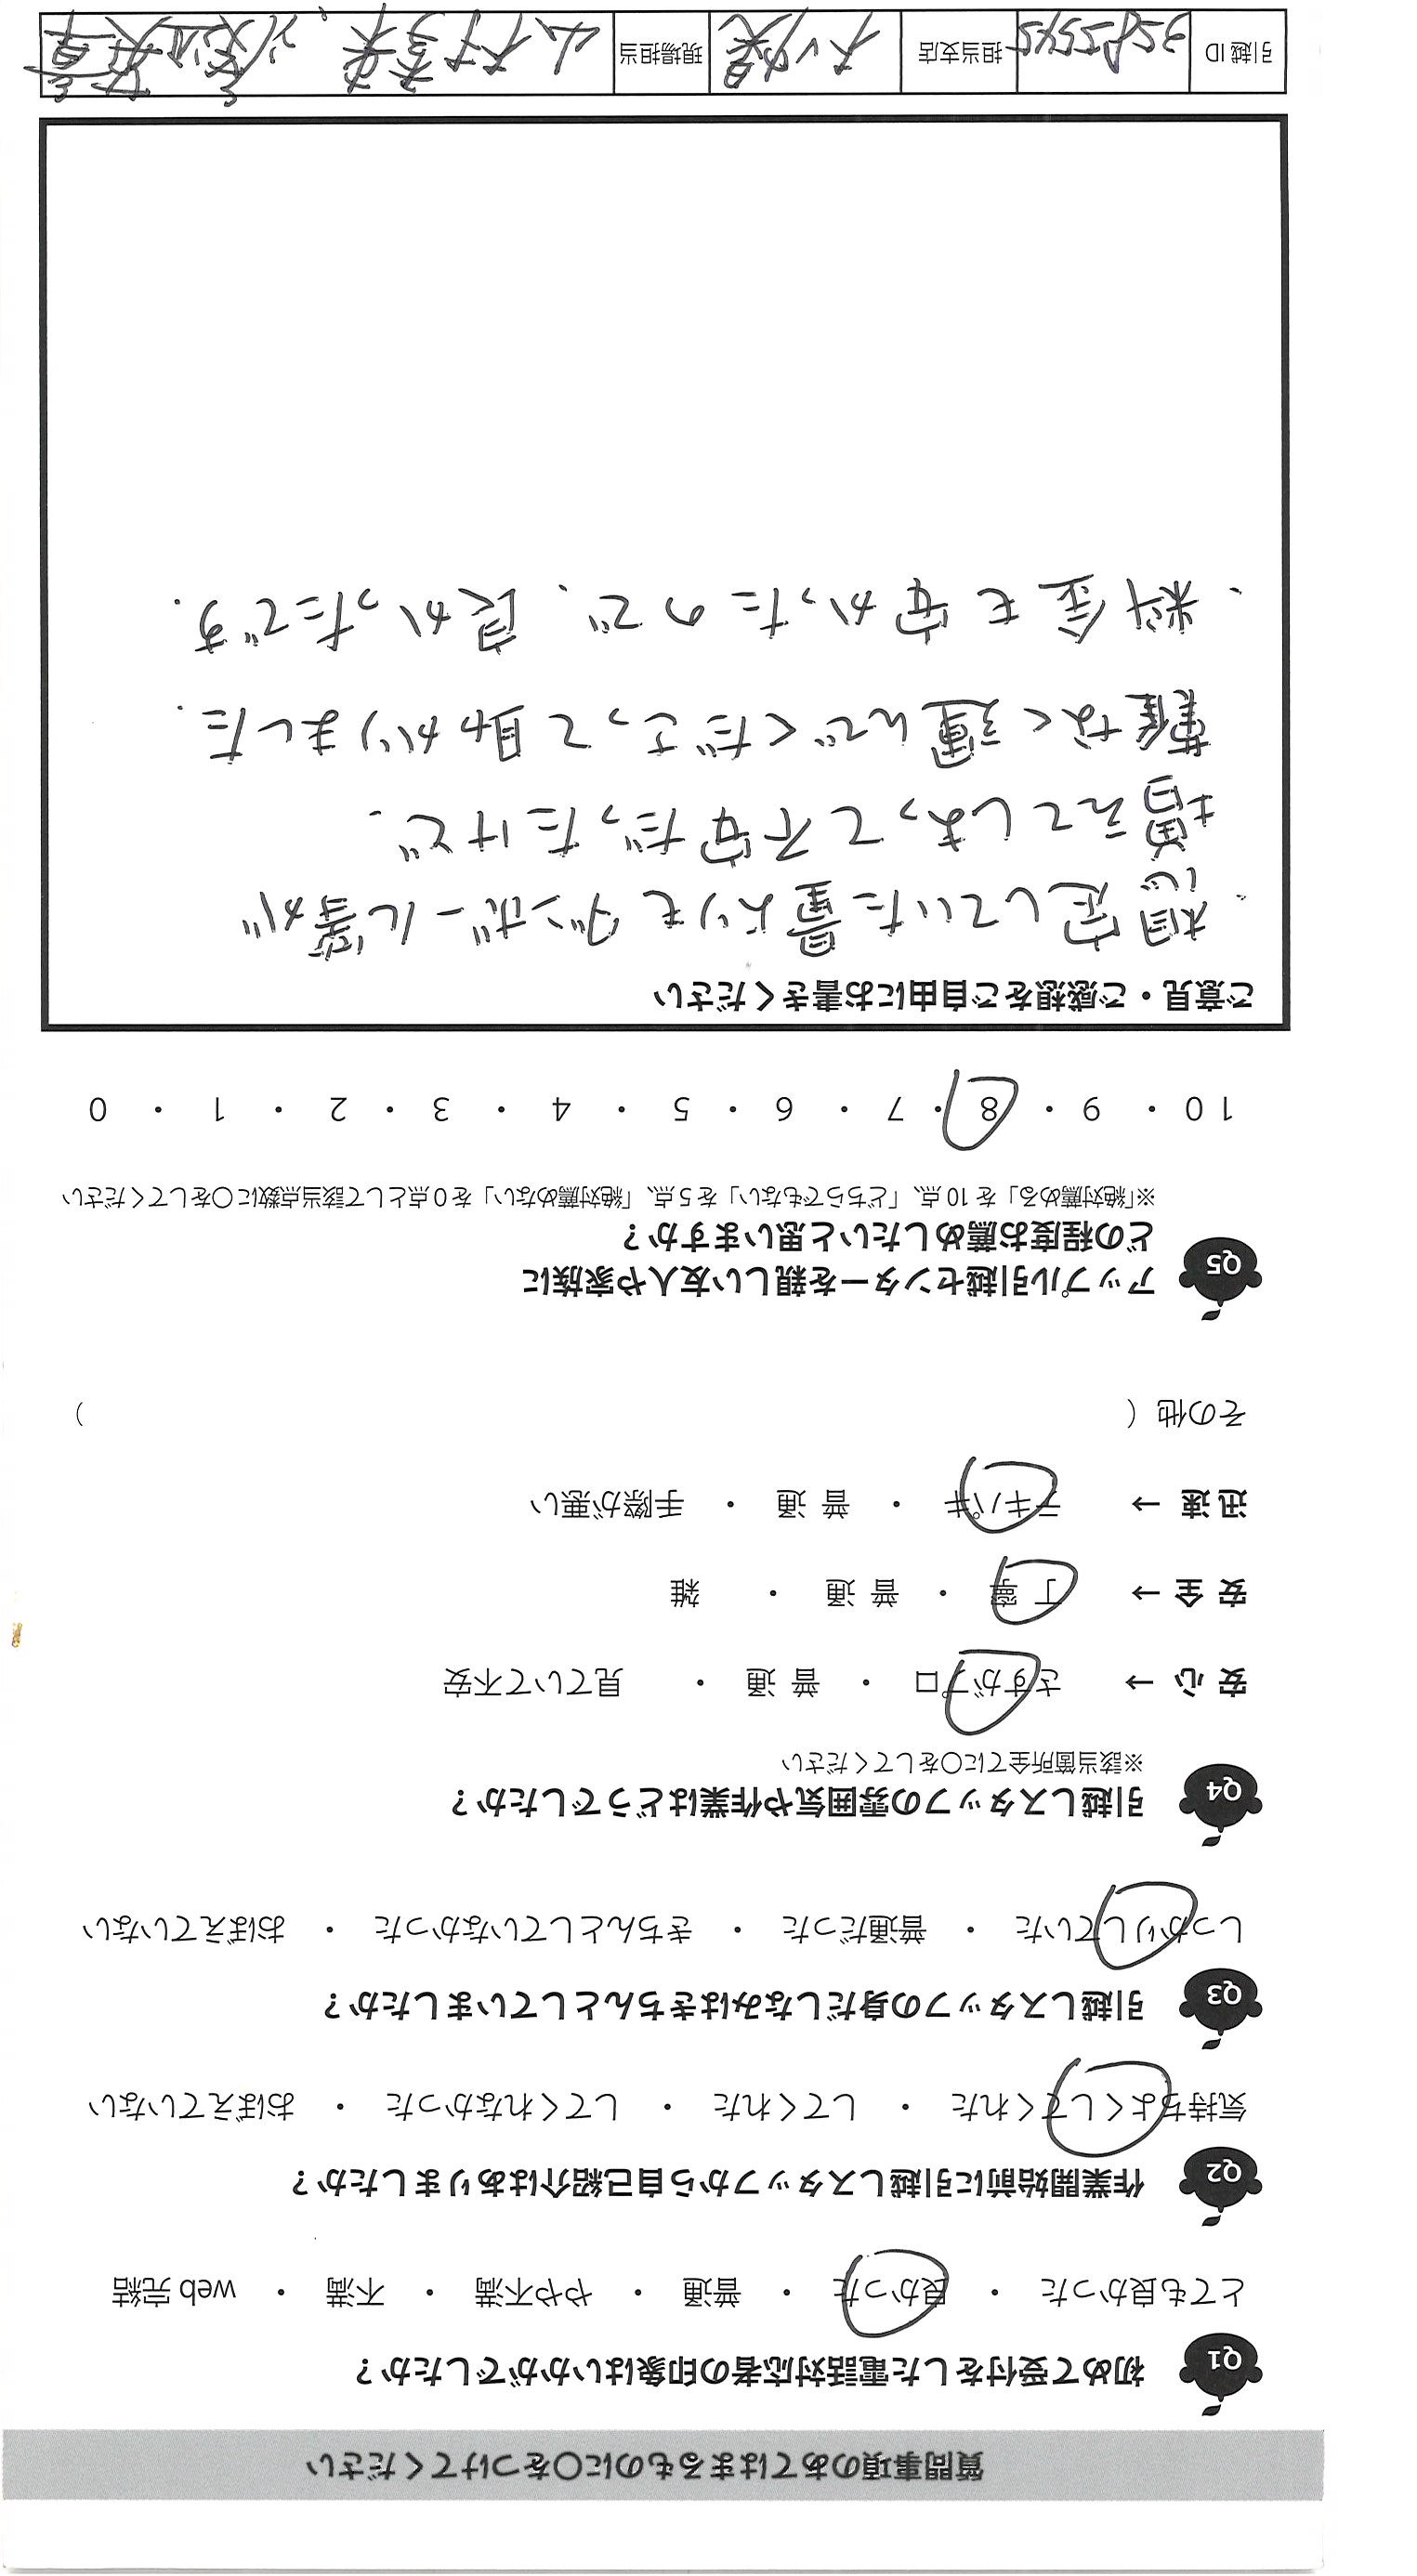 質問事項のあてはまるものに〇をつけてください
Q1 初めて受付をした電話対応者の印象はいかがでしたか？
とても良かった ・ 良かった ・ 普通 ・ やや不満 ・ 不満 ・ web 完結
Q2 作業開始前に引越しスタッフから自己紹介はありましたか？
気持ちよくしてくれた ・ してくれた ・ してくれなかった ・ おぼえていない
Q3 引越しスタッフの身だしなみはきちんとしていましたか？
しっかりしていた ・ 普通だった ・ きちんとしていなかった ・ おぼえていない
Q4 引越しスタッフの雰囲気や作業はどうでしたか？
※該当箇所全てに〇をしてください
安 心 → さすがプロ ・ 普 通 ・ 見ていて不安
安 全 → 丁 寧 ・ 普 通 ・ 雑
迅 速 → テキパキ ・ 普 通 ・ 手際が悪い
その他（ ）
Q5 アップル引越センターを親しい友人や家族に
どの程度お薦めしたいと思いますか？
※「絶対薦める」を 10 点、「どちらでもない」を 5 点、「絶対薦めない」を 0 点として該当点数に〇をしてください
10 ・ 9 ・ 8 ・ 7 ・ 6 ・ 5 ・ 4 ・ 3 ・ 2 ・ 1 ・ 0
ご意見・ご感想をご自由にお書きください
・想定していた量よりもダンボール等が
増えてしまって不安だったけど、
難なく運んでくださって助かりました.
・料金も安かったので、良かったです.
引越 ID 担当支店 現場担当